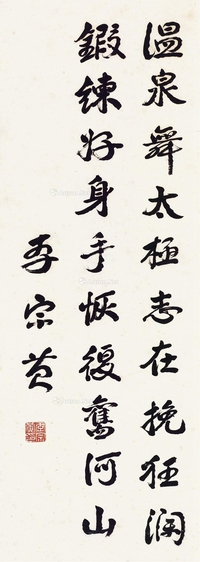 温泉舞太極志在挽狂瀾
鍛練好身手恢復奮河山
李宗黄